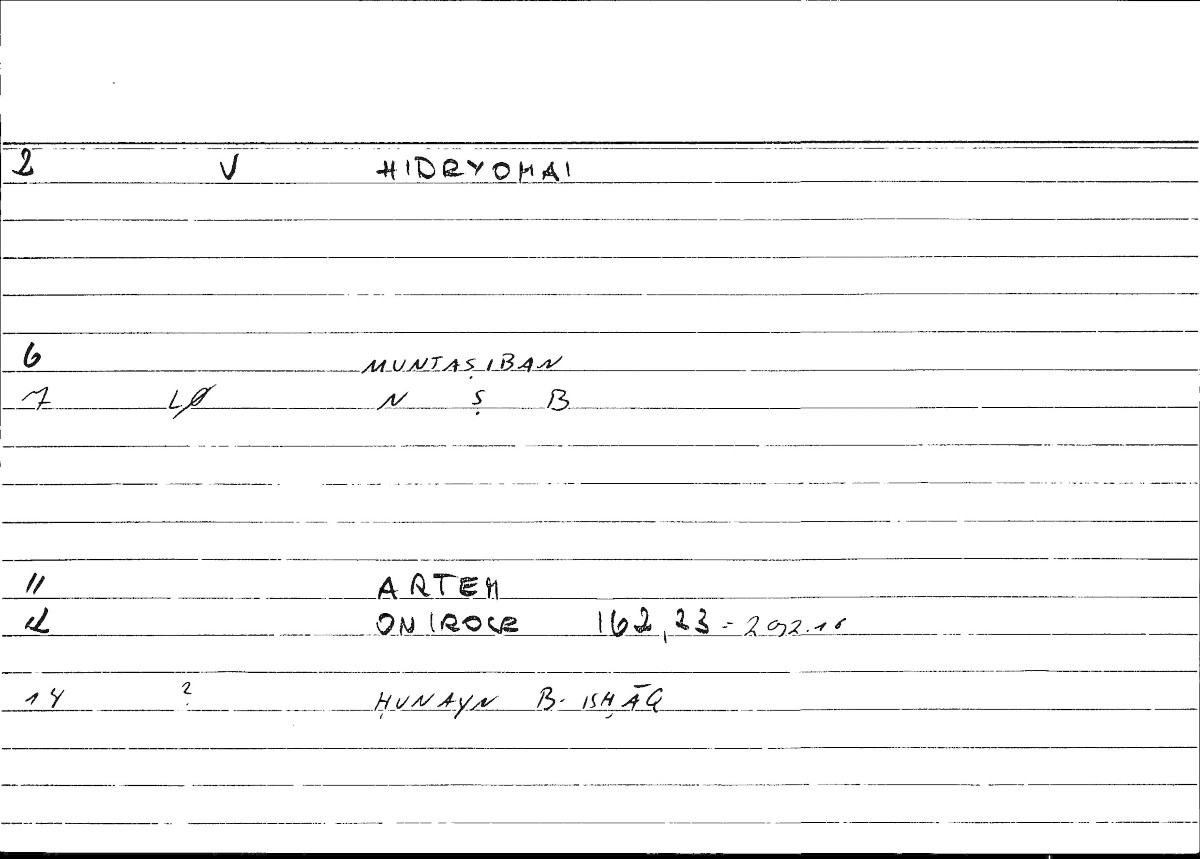 2 V HIDRYOMAI
6 MUNTAṢIBAN
7 LØ N Ṣ B
11 ARTEM
12 ONIROCR 162,23 - 292.16
14 ? ḤUNAYN B. ISḤĀQ